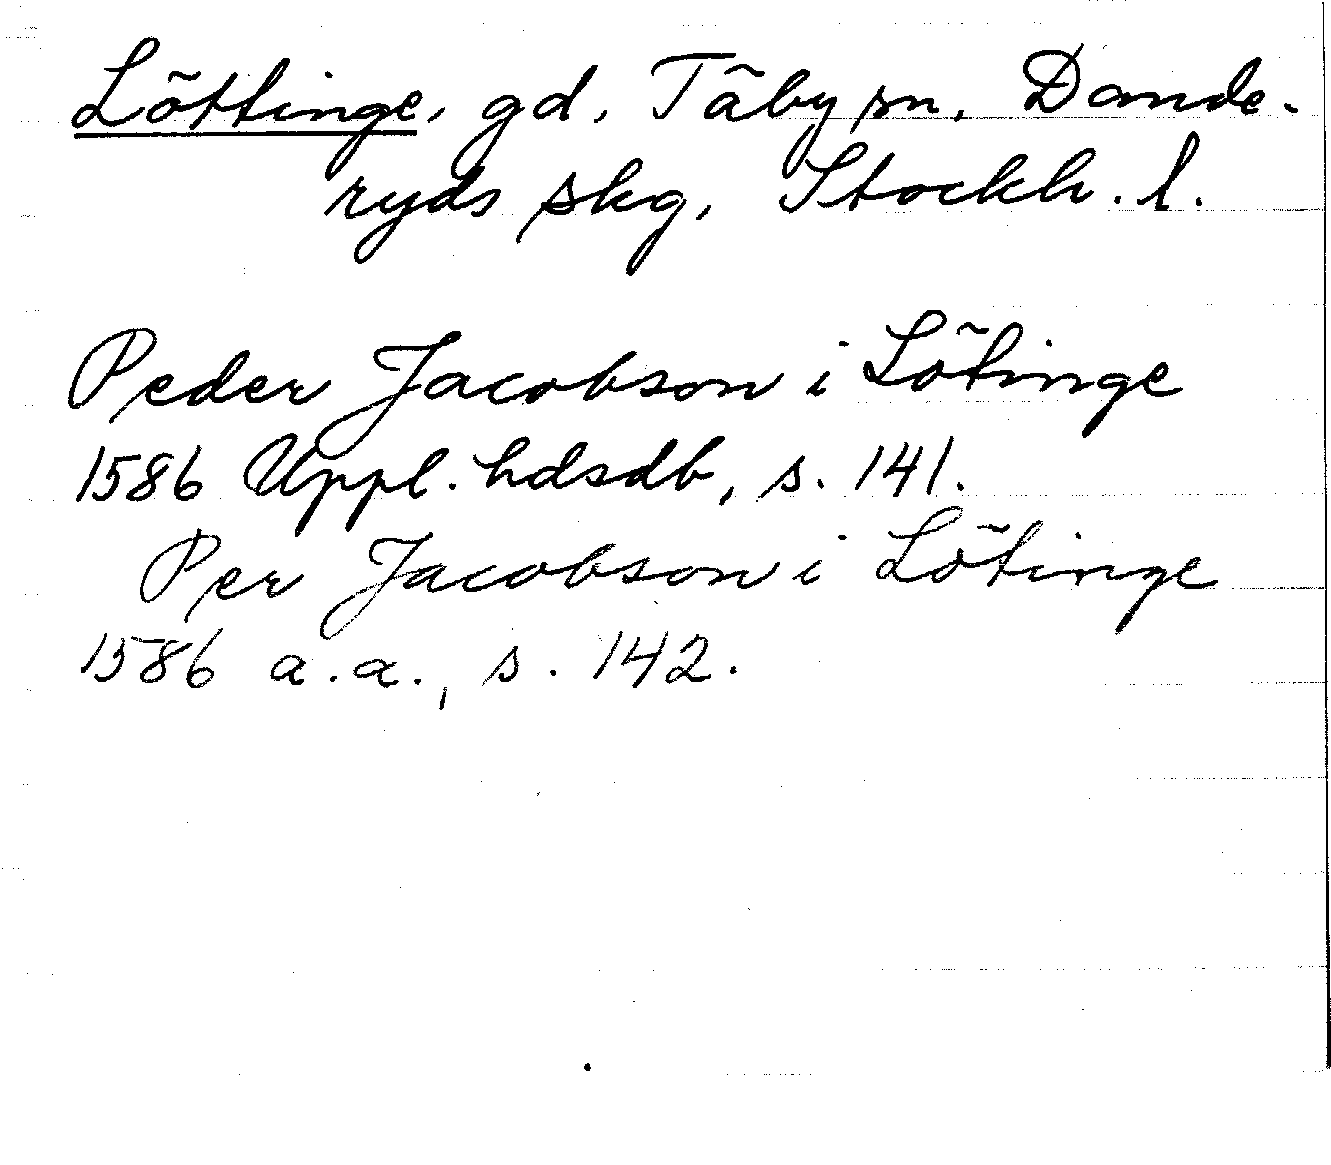 Löttinge, gd, Täby sn, Dande-
ryds skg, Stockh. l.
Peder Jacobson i Lötinge
1586 Uppl. hdsdb, s. 141.
Per Jacobson i Lötinge
1586 a.a., s. 142.